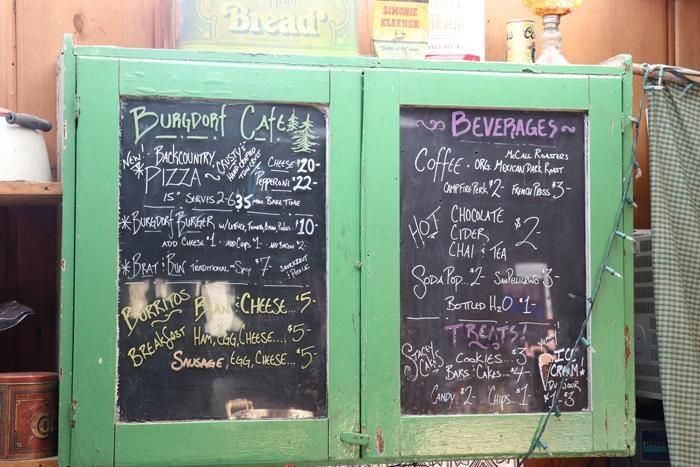 Bread
SIMONIZ
KLEENER
BURGDORF CAFE
NEW! BACKCOUNTRY
PIZZA
CHEESE $20-
PEPPERONI $22-
15" SERVES 2-6 35 MIN. BAKE TIME
*BURGDORF BURGER W/LETTUCE, TOMATO, ONION, PICKLES $10-
ADD CHEESE $1- ADD BACON $2-
*BRAT & BUN TRADITIONAL $7- SAUERKRAUT & PICKLE
BURRITOS BEAN & CHEESE... $5-
BREAKFAST HAM, EGG, CHEESE.... $5-
SAUSAGE, EGG, CHEESE... $5-
BEVERAGES
COFFEE MCCALL ROASTERS
ORG. MEXICAN DARK ROAST
CAMPFIRE PERK $2- FRENCH PRESS $3-
HOT CHOCOLATE
CIDER $2-
CHAI & TEA
SODA POP. $2- SAN PELLEGRINO $3-
BOTTLED H2O $1-
TREATS!
STACEY CAKES
COOKIES... $3
BARS & CAKES... $4-
CANDY $2- CHIPS $1-
YUM!
ICE
CREAM*
DU JOUR
$1-3